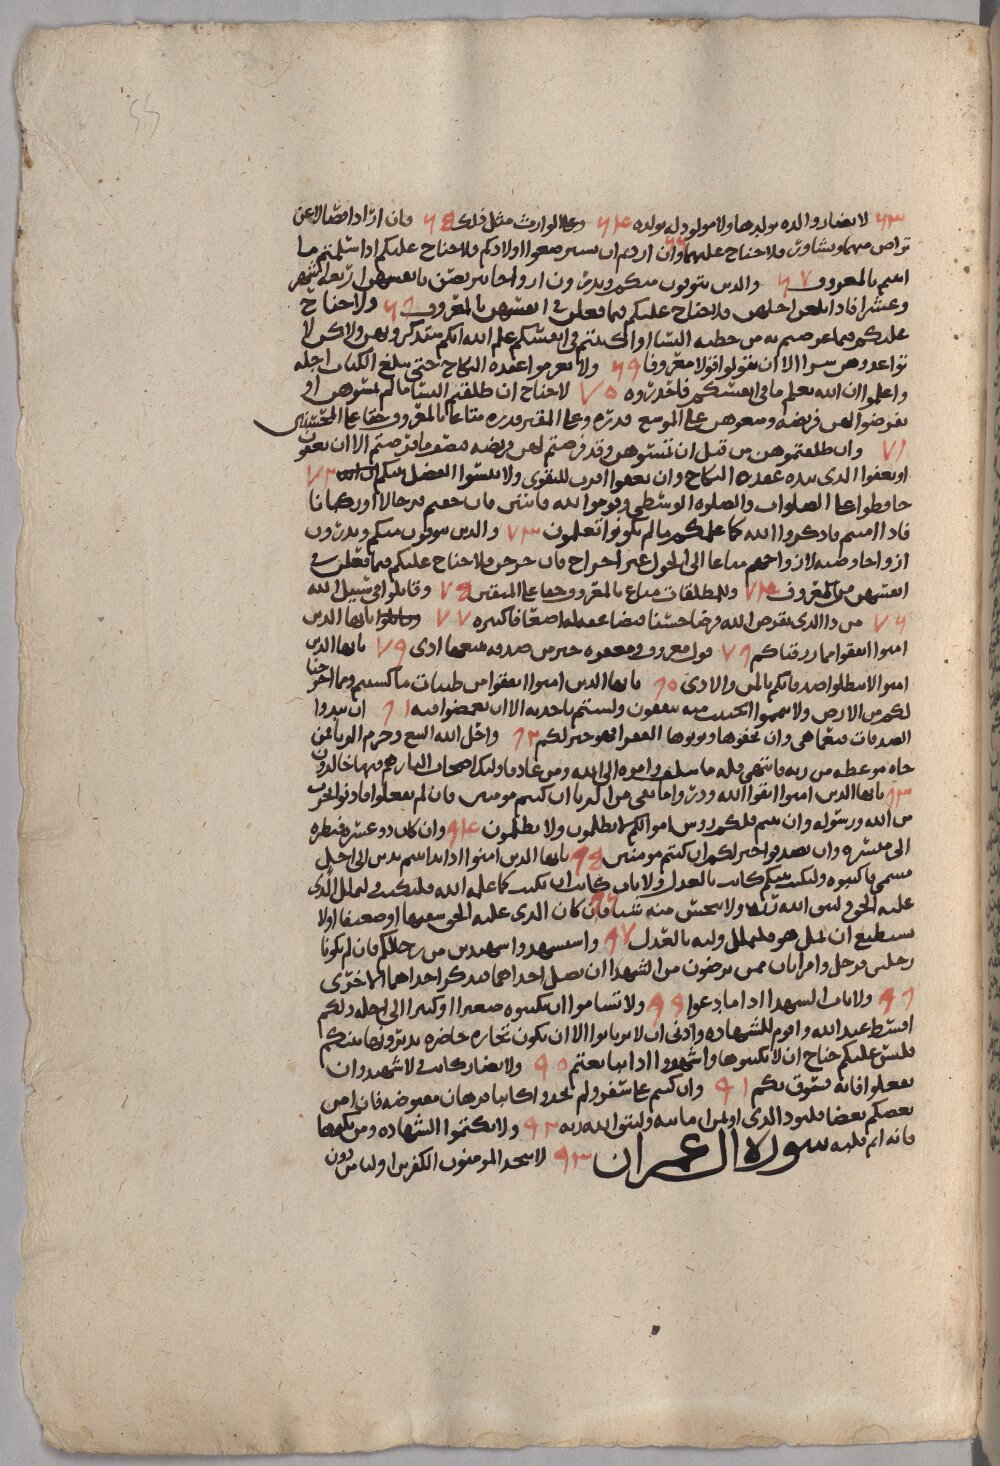 55
٦٣ لا تضار والده بولدها ولا مولود له بولده ٦٤ وعلى الوارث مثل ذلك ٦٥ فان ارادا فصالا عن
تراض منهما وتشاور فلا جناح عليهما ٦٦ وان اردتم ان تسترضعوا اولادكم فلا جناح عليكم اذا سلمتم ما
اتيتم بالمعروف ٦٧ والذين يتوفون منكم ويذرون ازواجا يتربصن بانفسهن اربعه اشهر
وعشرا فاذا بلغن اجلهن فلا جناح عليكم فيما فعلن في انفسهن بالمعروف ٦٨ ولا جناح
عليكم فيما عرضتم به من خطبه النسا او اكننتم في انفسكم علم الله انكم ستذكرونهن ولاكن لا
تواعدوهن سرا الا ان تقولوا قولا معروفا ٦٩ ولا تعزموا عقده النكاح حتى يبلغ الكتاب اجله
واعلموا ان الله يعلم ما في انفسكم فاحذروه ٧٠ لا جناح ان طلقتم النسا ما لم تمسوهن او
تفرضوا لهن فريضه ومتعوهن على الموسع قدره وعلى المقتر قدره متاعا بالمعروف حقا على المحسنين
٧١ وان طلقتموهن من قبل ان تمسوهن وقد فرضتم لهن فريضه فنصف ما فرضتم الا ان يعفون
او يعفوا الذي بيده عقده النكاح وان تعفوا اقرب للتقوى ولا تنسوا الفضل بينكم ٧٢
حافظوا على الصلوات والصلوه الوسطى وقوموا لله قانتين فان خفتم فرجالا او ركبانا
فاذا امنتم فاذكروا الله كما علمكم ما لم تكونوا تعلمون ٧٣ والذين يتوفون منكم ويذرون
ازواجا وصيه لازواجهم متاعا الى الحول غير اخراج فان خرجن فلا جناح عليكم فيما فعلن في
انفسهن من المعروف ٧٤ وللمطلقات متاع بالمعروف حقا على المتقين ٧٥ وقاتلوا في سبيل الله
٧٦ من ذا الذي يقرض الله قرضا حسنا فيضاعفه له اضعافا كثيره ٧٧ يايها الذين
امنوا انفقوا مما رزقناكم ٧٨ قول معروف ومغفره خير من صدقه يتبعها اذى ٧٩ يايها الذين
امنوا لا تبطلوا صدقاتكم بالمن والاذى ٨٠ يايها الذين امنوا انفقوا من طيبات ما كسبتم ومما اخرجنا
لكم من الارض ولا تيمموا الخبيث منه تنفقون ولستم باخذيه الا ان تغمضوا فيه ٨١ ان تبدوا
الصدقات فنعما هي وان تخفوها وتوتوها الفقرا فهو خير لكم ٨٢ واحل الله البيع وحرم الربا فمن
جاه موعظه من ربه فانتهى فله ما سلف وامره الى الله ومن عاد فاوليك اصحاب النار هم فيها خالدون
٨٣ يايها الذين امنوا اتقوا الله وذروا ما بقي من الربا ان كنتم مومنين فان لم تفعلوا فاذنوا بحرب
من الله ورسوله وان تبتم فلكم روس اموالكم لا تظلمون ولا تظلمون ٨٤ وان كان ذو عسره فنظره
الى ميسره وان تصدقوا خير لكم ان كنتم مومنين ٨٥ يايها الذين امنوا اذا تداينتم بدين الى اجل
مسمى فاكتبوه وليكتب بينكم كاتب بالعدل ولا ياب كاتب ان يكتب كما علمه الله فليكتب وليملل الذي
عليه الحق وليتق الله ربه ولا يبخس منه شيا ٨٦ فان كان الذي عليه الحق سفيها او ضعيفا او لا
يستطيع ان يمل هو فليملل وليه بالعدل ٨٧ واستشهدوا شهيدين من رجالكم فان لم يكونا
رجلين فرجل وامراتان ممن ترضون من الشهدا ان تضل احداهما فتذكر احداهما الاخرى
٨٨ ولا ياب الشهدا اذا ما دعوا ٨٩ ولا تساموا ان تكتبوه صغيرا او كبيرا الى اجله ذلكم
اقسط عند الله واقوم للشهاده وادنى ان لا ترتابوا الا ان تكون تجاره حاضره تديرونها بينكم
فليس عليكم جناح ان لا تكتبوها واشهدوا اذا تبايعتم ٩٠ ولا يضار كاتب ولا شهيد وان
تفعلوا فانه فسوق بكم ٩١ وان كنتم على سفر ولم تجدوا كاتبا فرهان مقبوضه فان امن
بعضكم بعضا فليود الذي اوتمن امانته وليتق الله ربه ٩٢ ولا تكتموا الشهاده ومن يكتمها
فانه اثم قلبه سوره ال عمران ٩٣ لا يتخذ المومنون الكفرين اوليا من دون